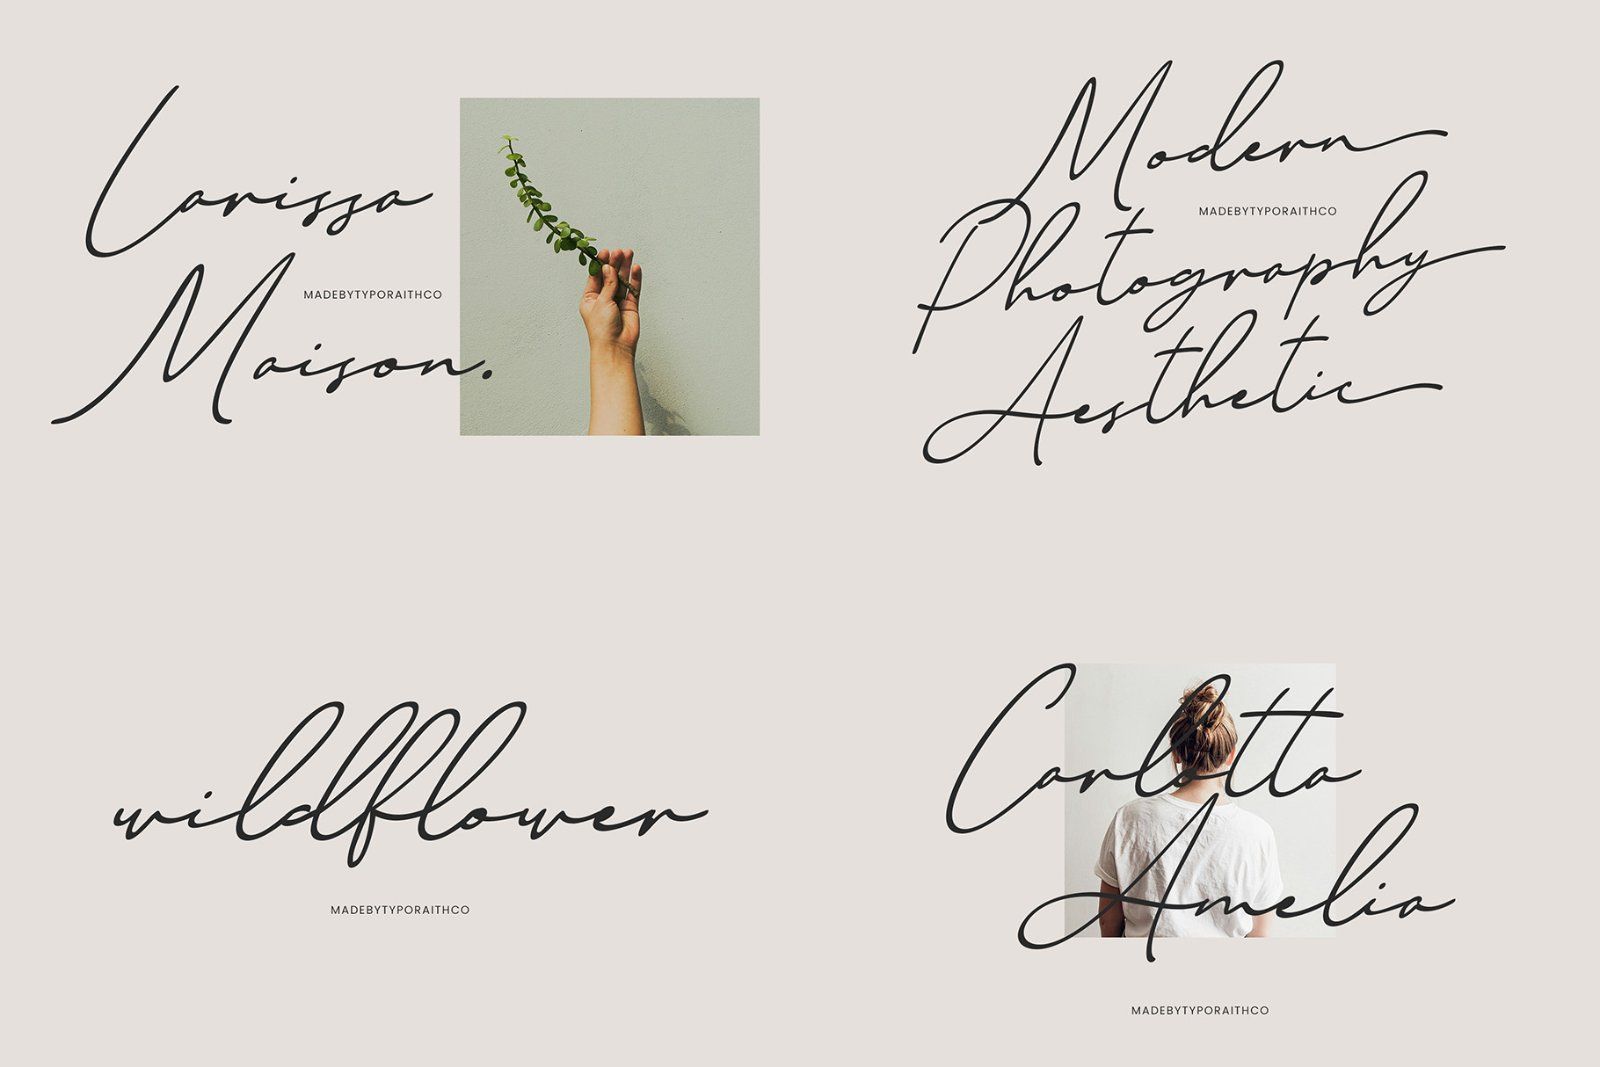 Larissa
MADEBYTYPORAITHCO
Maison.
Modern
MADEBYTYPORAITHCO
Photography
Aesthetic
wildflower
MADEBYTYPORAITHCO
Carlotta
Amelia
MADEBYTYPORAITHCO